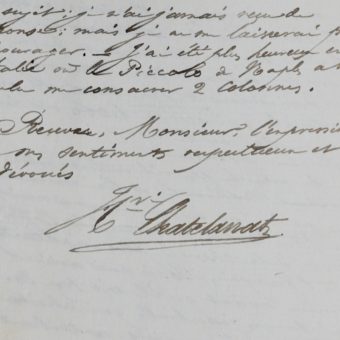 sujet: je n'ai jamais reçu de
ponse; mais je ne me laisserai p
ourager. — J'ai été plus heureux en
talie où le Piccolo de Naples a
ulu me consacrer 2 colonnes.
Recevez, Monsieur, l'expressi
mes sentiments respectueux et
dévoués
Hri. Chatelanat